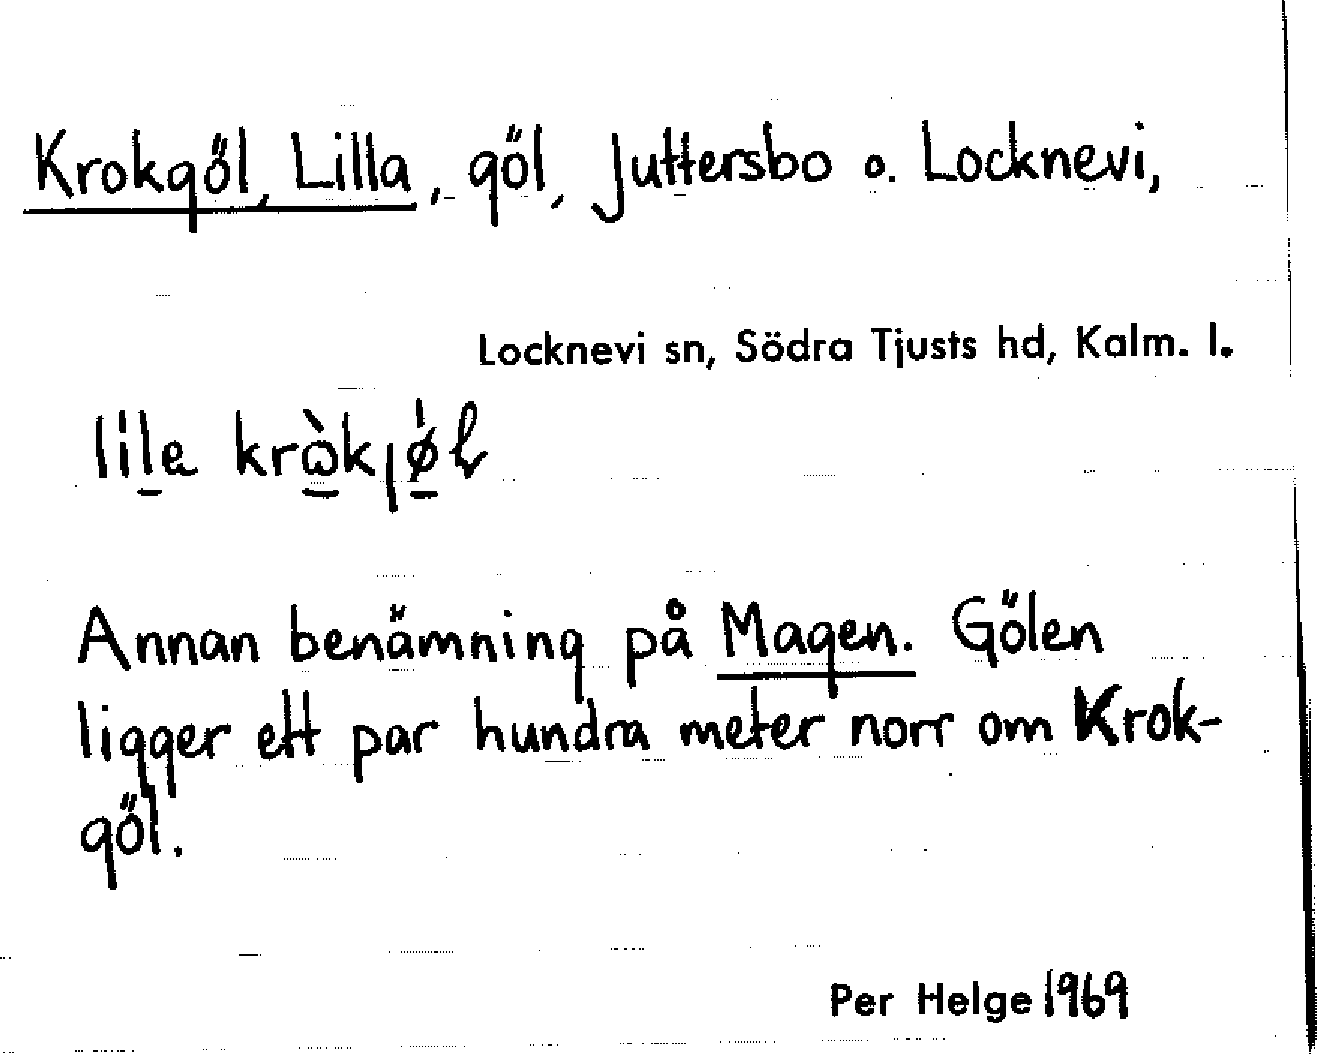 Krokgöl, Lilla, göl, Juttersbo o. Locknevi,
Locknevi sn, Södra Tjusts hd, Kalm. l.
Annan benämning på Magen. Gölen
ligger ett par hundra meter norr om Krok-
göl.
Per Helge 1969